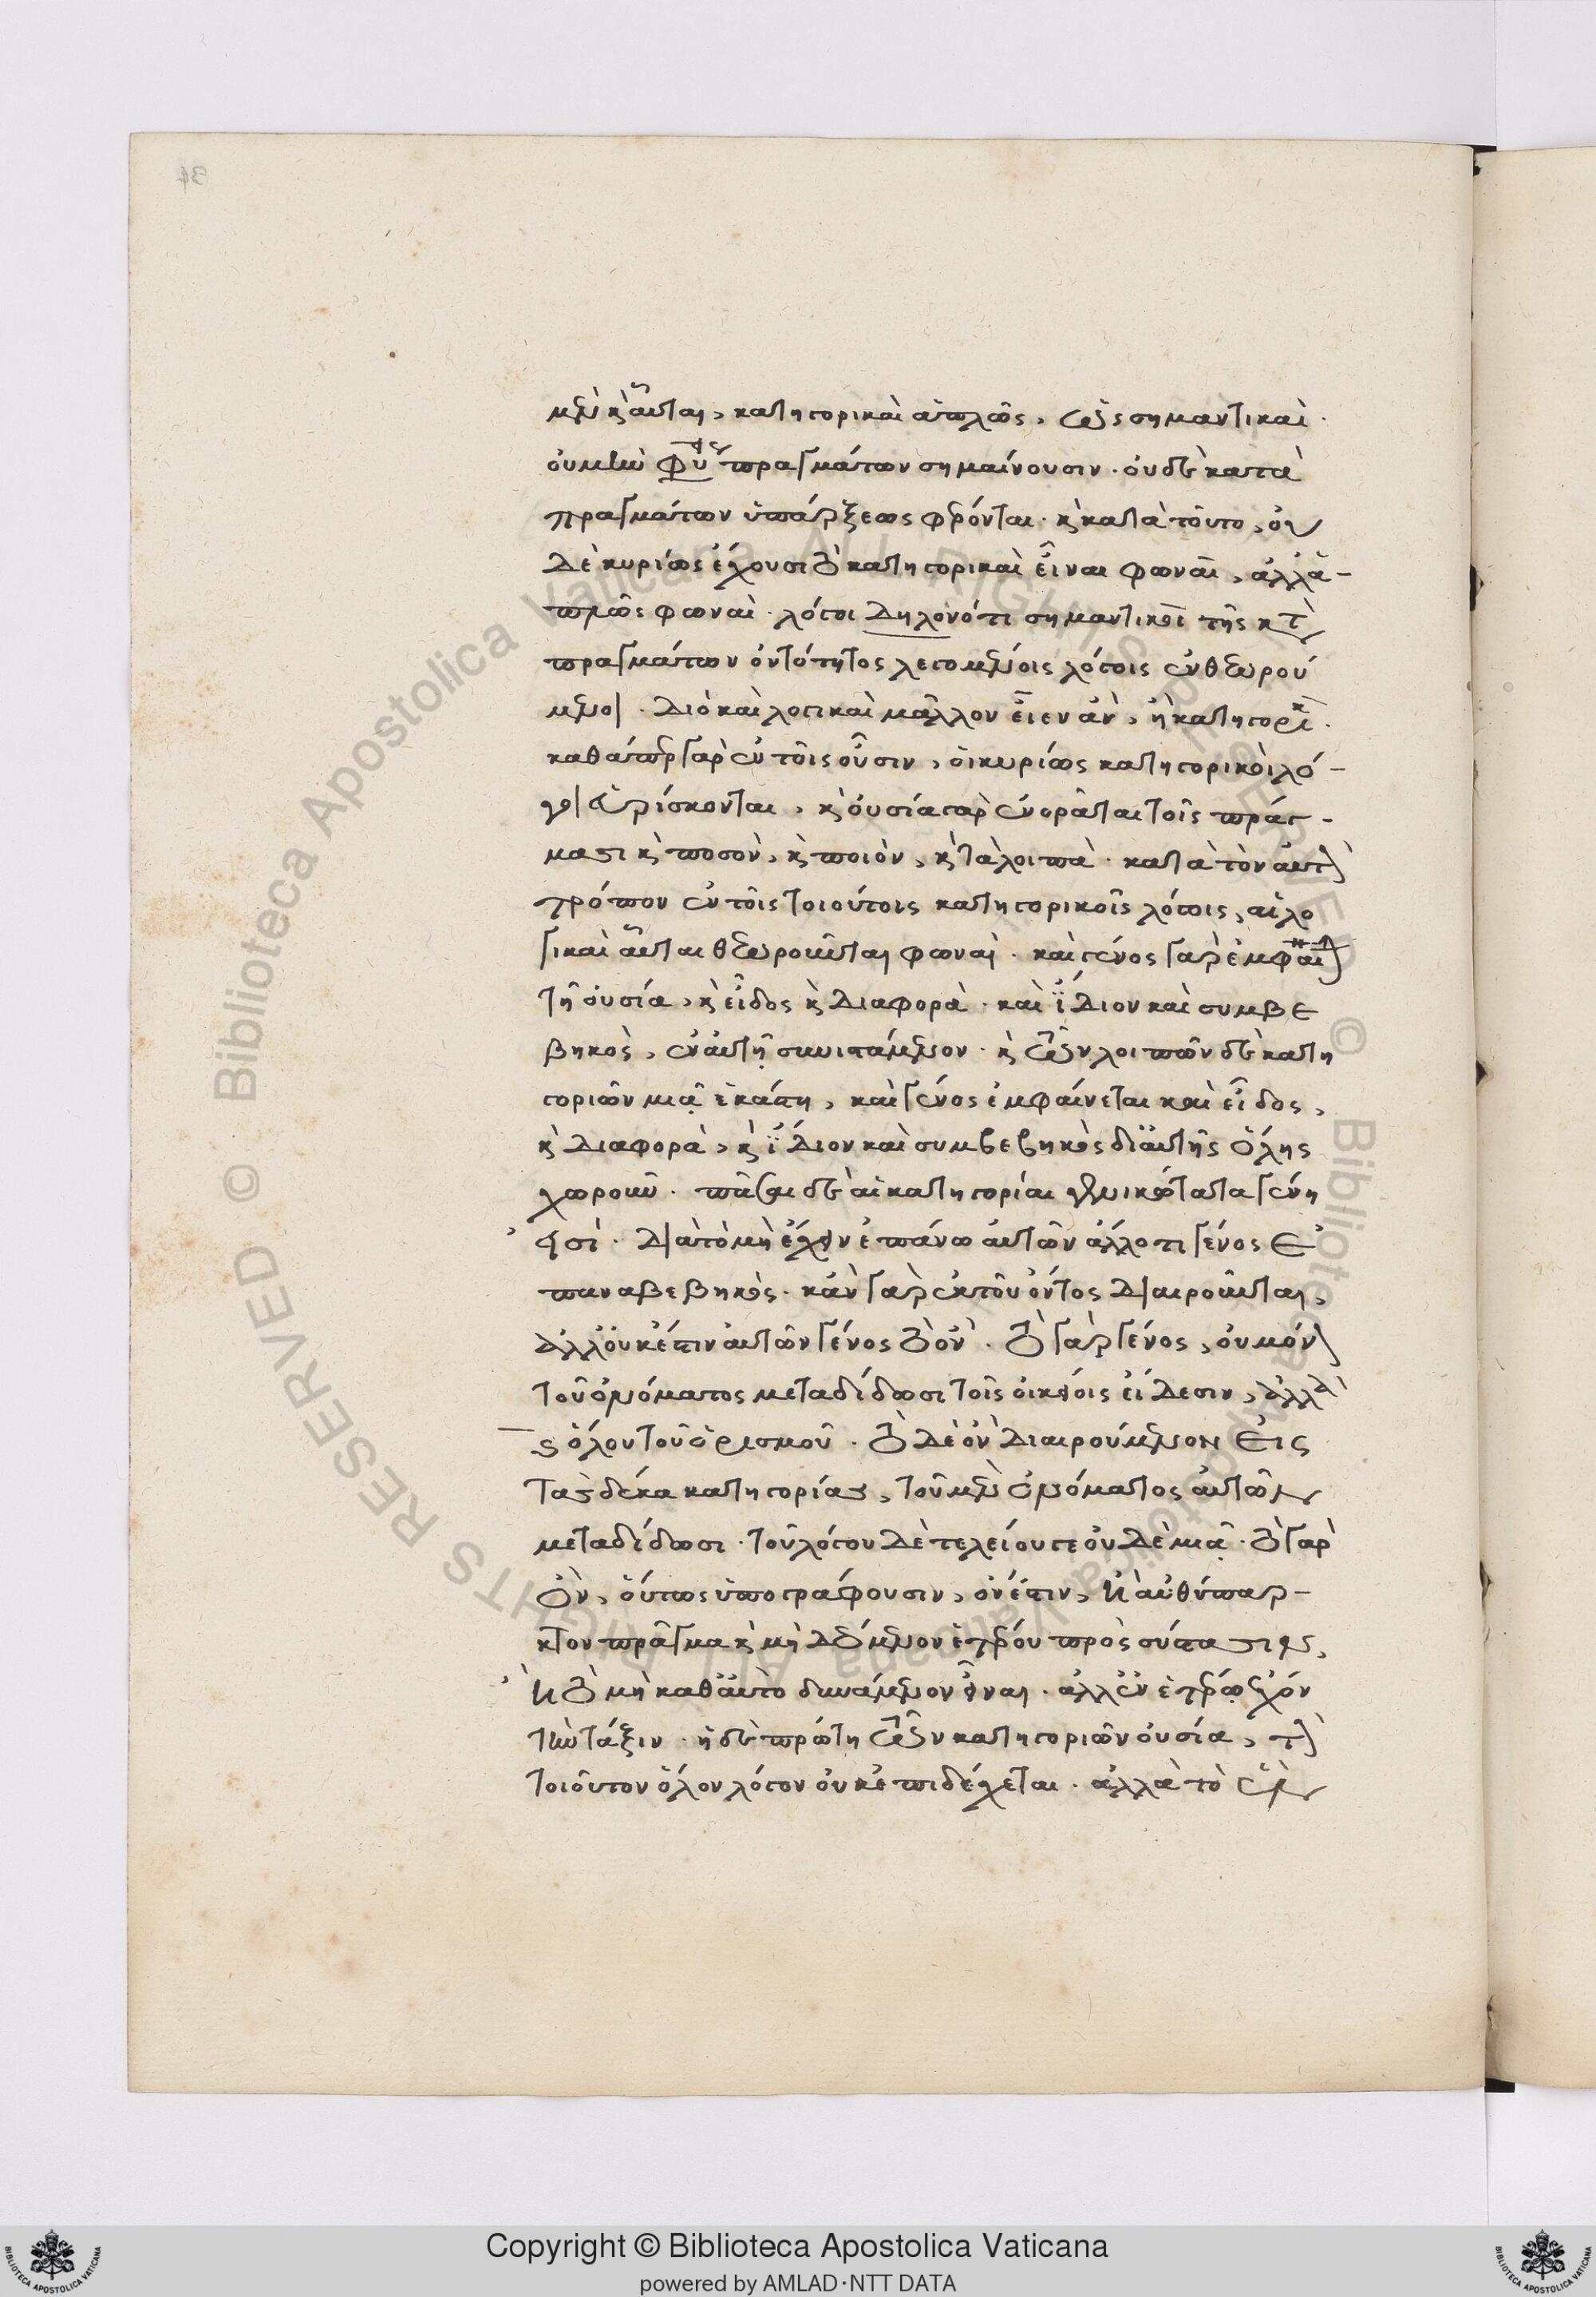 34
μὲν κ̀ αὗται, κατηγορικαὶ ἁπλῶς, ὡς σημαντικαὶ.
οὐ μὴν πραγμάτων σημαίνουσιν. οὐδὲ κατὰ
πραγμάτων ὑπάρξεως φέρονται. κ̀ κατὰ τοῦτο, οὐ
δὲ κυρίως ἔχουσι τὸ κατηγορικαὶ εἶναι φωναὶ, ἀλλ' ἁ-
πλῶς φωναὶ. λόγοι δηλονότι σημαντικοὶ τῆς κτ̀
πραγμάτων ὀντότητος λεγομένοις λόγοις ἐνθεωρού
μενοι. διὸ καὶ λογικαὶ μᾶλλον εἶεν ἂν, ἢ κατηγορικαὶ.
καθάπερ γὰρ ἐν τοῖς οὖσιν, οἱ κυρίως κατηγορικοὶ λό-
γοι εὑρίσκονται, κ̀ οὐσία γὰρ ἐνορᾶται τοῖς πράγ-
μασι κ̀ ποσὸν, κ̀ ποιὸν, κ̀ τὰ λοιπὰ. κατὰ τὸν αὐτὸν
τρόπον ἐν τοῖς τοιούτοις κατηγορικοῖς λόγοις, αἱ λο
γικαὶ αὗται θεωροῦνται φωναὶ. καὶ γένος γὰρ ἐμφαί
τῇ οὐσία, κ̀ εἶδος κ̀ διαφορὰ. καὶ ἴδιον καὶ συμβε
βηκὸς, ἐν αὐτῇ συνιστάμενον. κ̀ τῶν λοιπῶν δὲ κατη
γοριῶν μιᾷ ἑκάστη, καὶ γένος ἐμφαίνεται καὶ εἶδος,
κ̀ διαφορὰ, κ̀ ἴδιον καὶ συμβεβηκὸς δι' αὐτῆς ὅλης
χωροῦν. πᾶσαι δὲ αἱ κατηγορίαι γενικώτατα γένη
εἰσὶ. διὰ τὸ μὴ ἔχειν ἐπάνω αὐτῶν ἄλλο τι γένος ἐ
παναβεβηκὸς. κἂν γὰρ ἐκ τοῦ ὄντος διαιροῦνται,
ἀλλ' οὐκ ἔστιν αὐτῶν γένος τὸ ὂν. τὸ γὰρ γένος, οὐ μόν
τοῦ ὀνόματος μεταδίδωσι τοῖς οἰκείοις εἴδεσιν, ἀλλὰ
κ̀ ὅλου τοῦ ὁρισμοῦ. τὸ δὲ ὂν διαιρούμενον εἰς
τὰς δέκα κατηγορίας, τοῦ μὲν ὀνόματος αὐτῶν
μεταδίδωσι. τοῦ λόγου δὲ τελείου γε οὐδὲ μιᾷ. τὸ γὰρ
ὂν, οὕτως ὑπογράφουσιν, ὄν ἐστιν, ἢ αὐθύπαρ-
κτον πρᾶγμα κ̀ μὴ δεόμενον ἑτέρου πρὸς σύστασιν,
ἢ τὸ μὴ καθ' αὑτὸ δυνάμενον εἶναι. ἀλλ' ἐν ἑτέρῳ ἔχον
τὴν τάξιν. ἡ δὲ πρώτη τῶν κατηγοριῶν οὐσία, τὸν
τοιοῦτον ὅλον λόγον οὐκ ἐπιδέχεται. ἀλλὰ τὸ ἓν
Copyright © Biblioteca Apostolica Vaticana
powered by AMLAD·NTT DATA